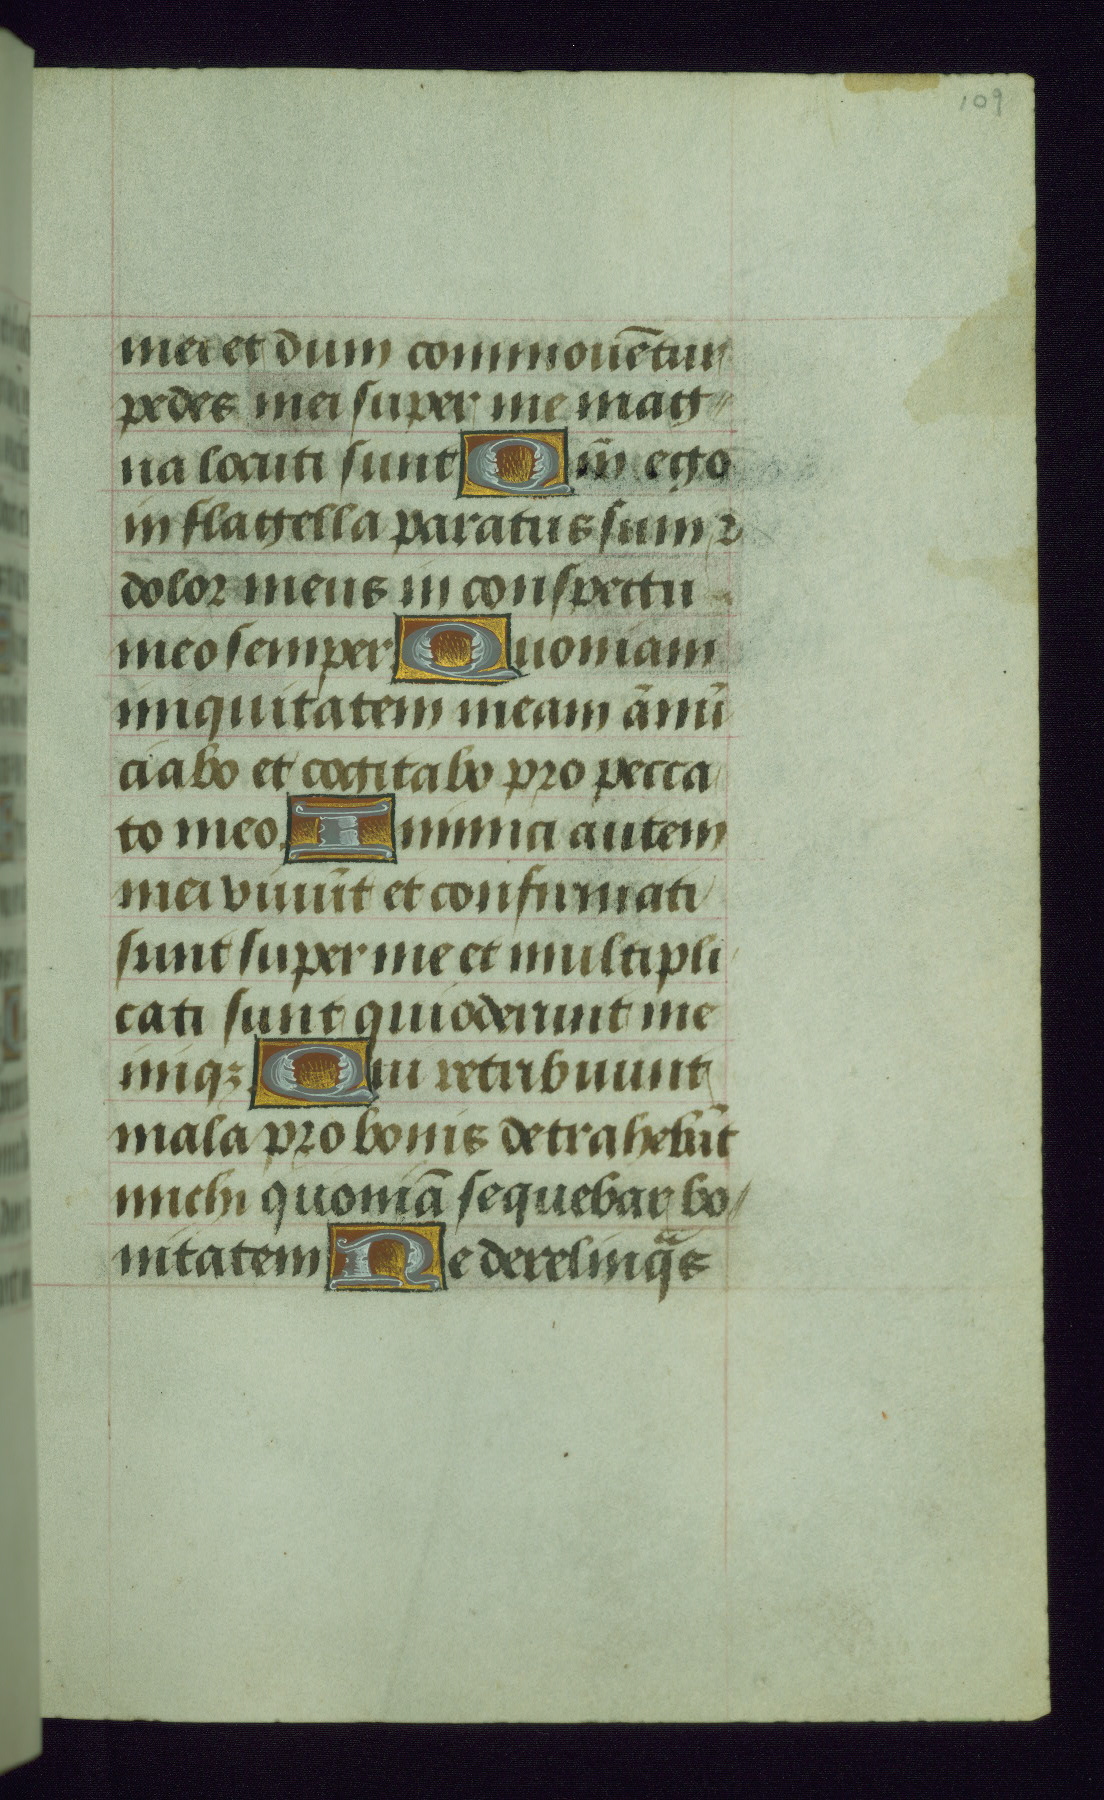 109
mei et dum commouētur
pedes mei super me mag
na locuti sunt Qm̄ ego
in flagella paratus sum ⁊
dolor meus in conspectu
meo semper Quoniam
iniquitatem meam ānnū
ciabo et cogitabo pro pecca
to meo. Inimici autem
mei viuūt et confirmati
sunt super me et multipli
cati sunt qui oderunt me
iniqꝫ Qui retribuunt
mala pro bonis detrahebūt
michi quoniā sequebar bo
nitatem Ne derelinqᵃs